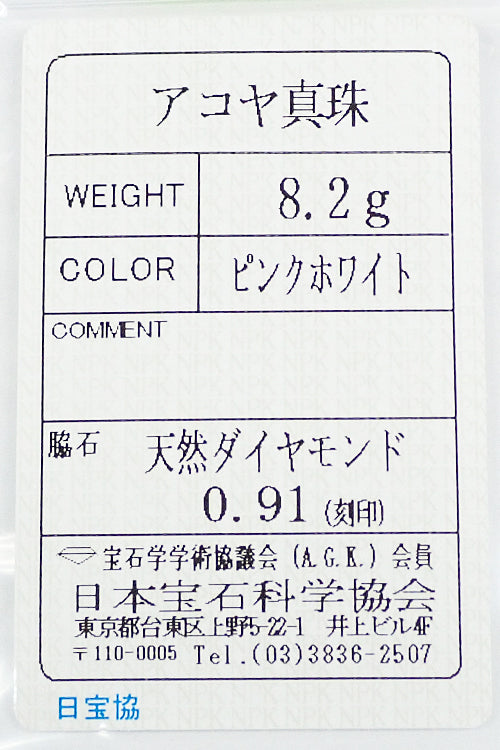 アコヤ真珠
WEIGHT 8.2g
COLOR ピンクホワイト
COMMENT
脇石 天然ダイヤモンド
0.91 (刻印)
宝石学学術協議会 (A.G.K.) 会員
日本宝石科学協会
東京都台東区上野5-22-1 井上ビル4F
〒110-0005 Tel.(03)3836-2507
日宝協